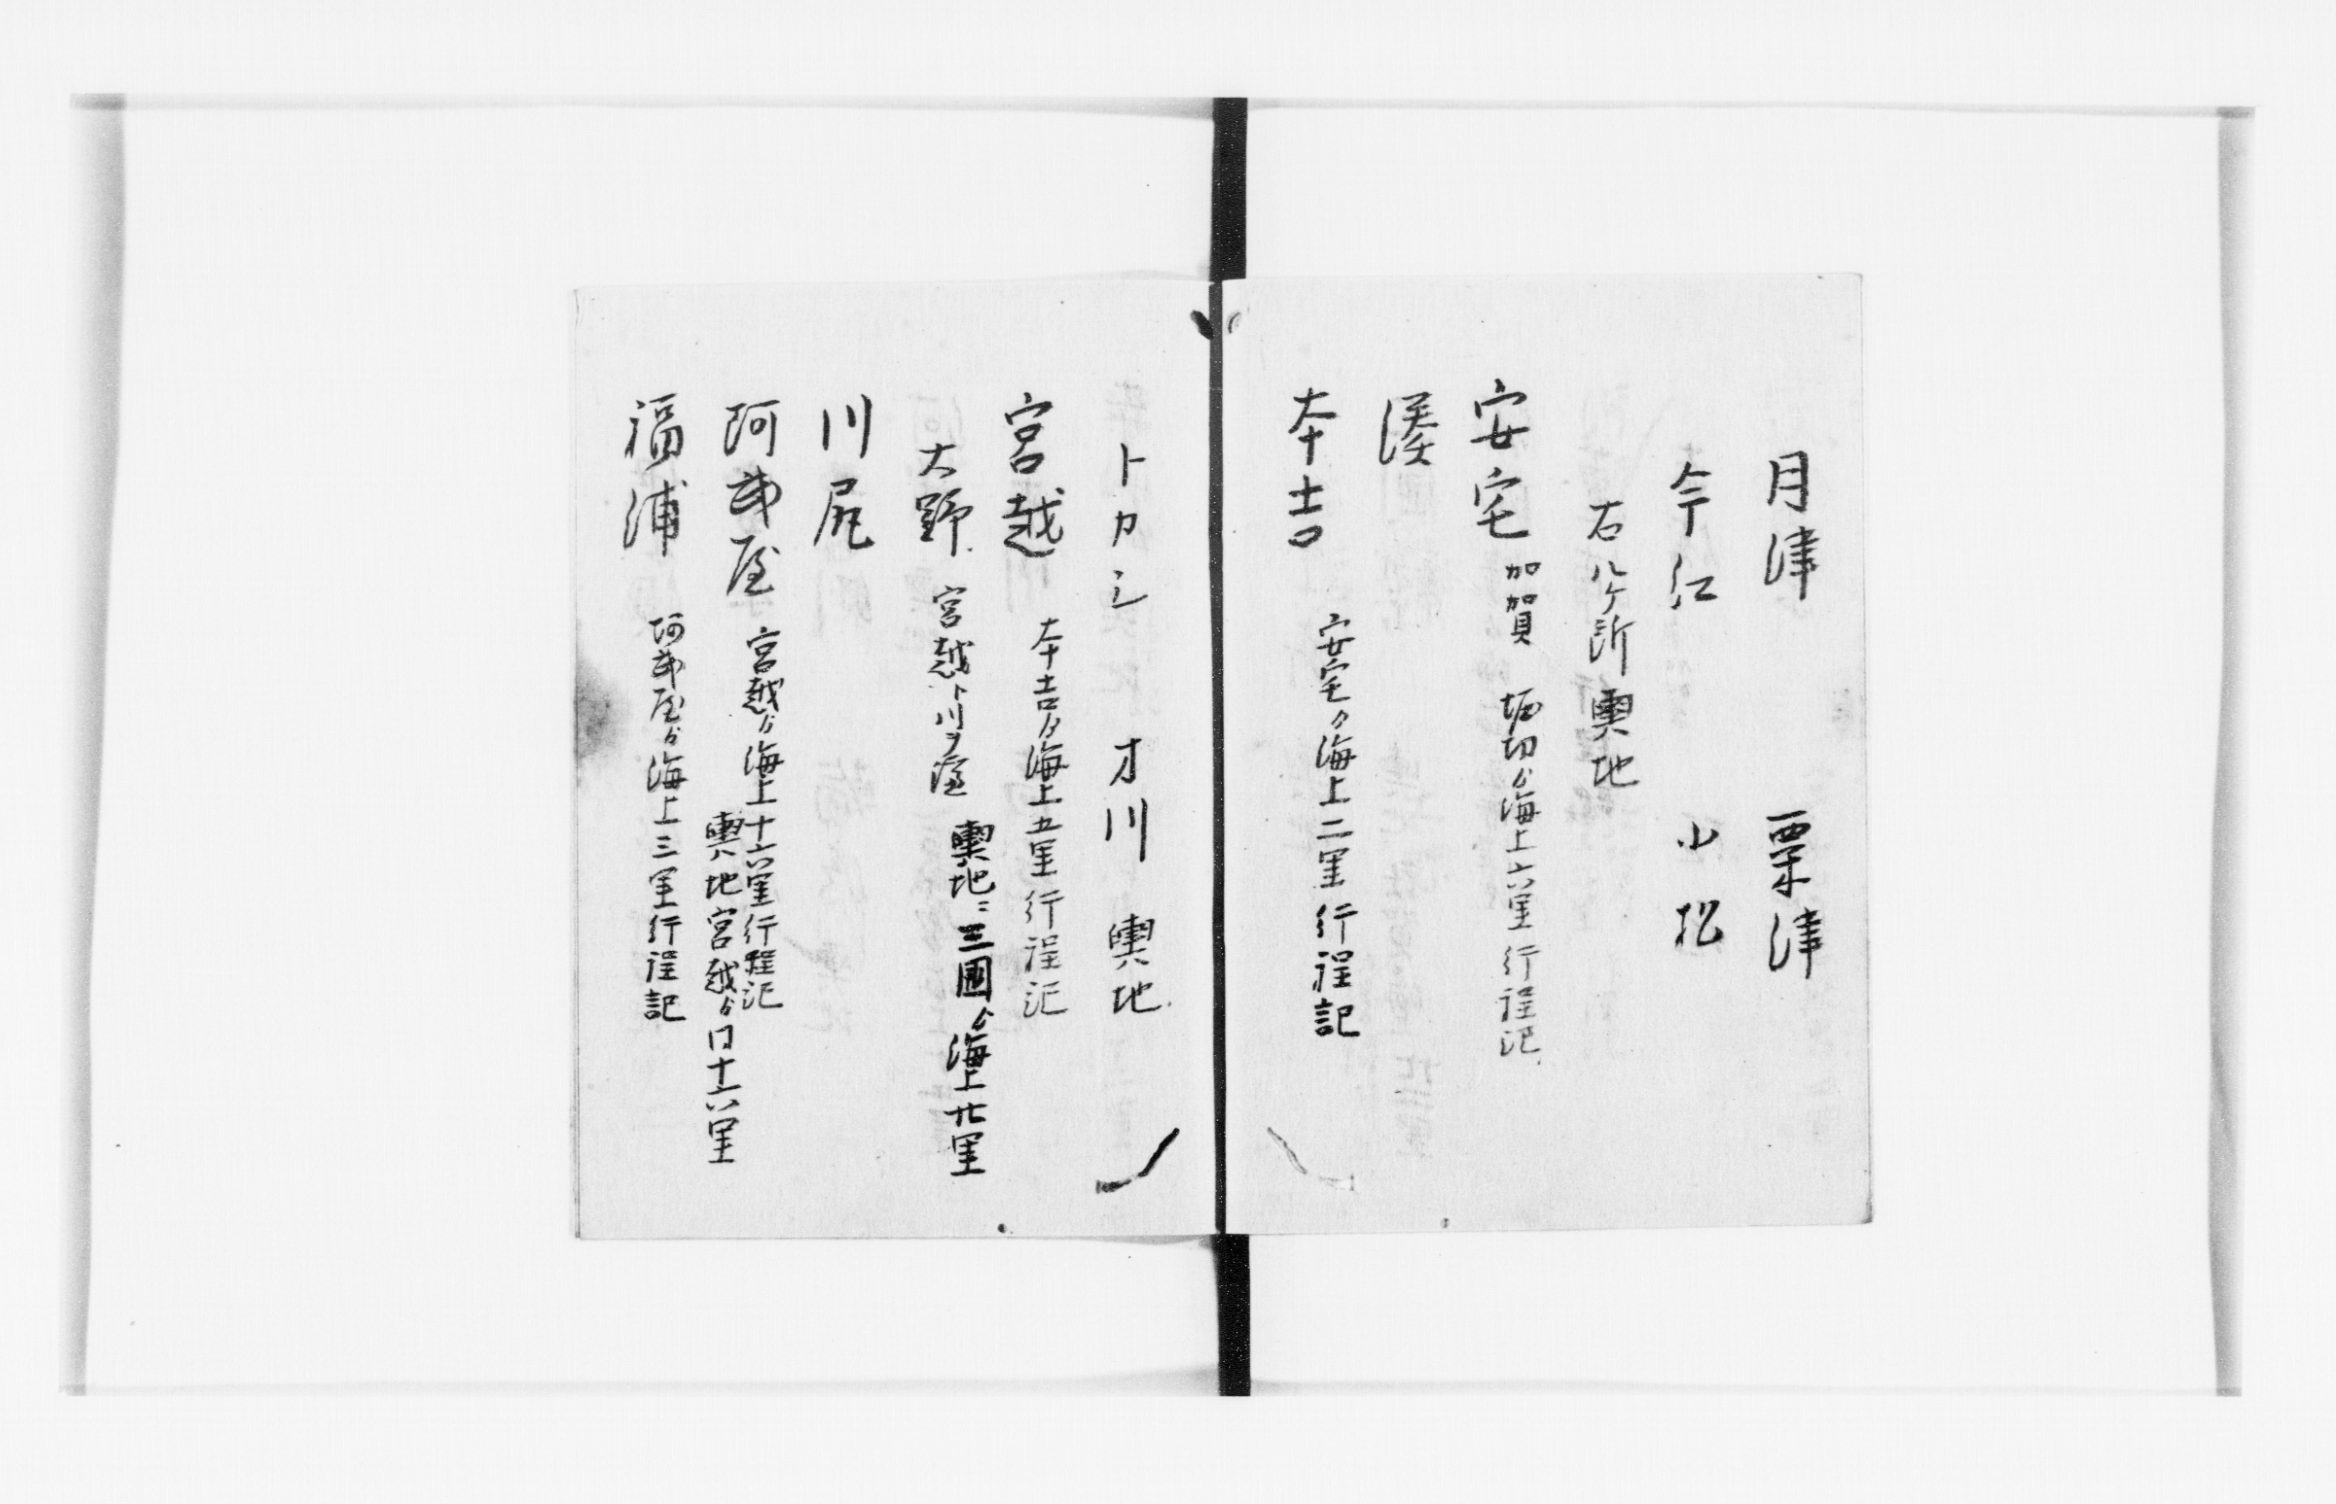 月津　粟津
今江　小松
右八ケ所輿地
安宅　加賀　堀切ゟ海上六里行程記
湊
本吉　安宅ゟ海上二里行程記
トカシ　才川　輿地
宮越　本吉ゟ海上五里行程記
大野　宮越ト川ヲ 輿地ニ三國ゟ海上廿里
川尻
阿武屋　宮越ゟ海上十六里行程記
輿地宮越ゟ口十六里
福浦　阿武屋ゟ海上三里行程記